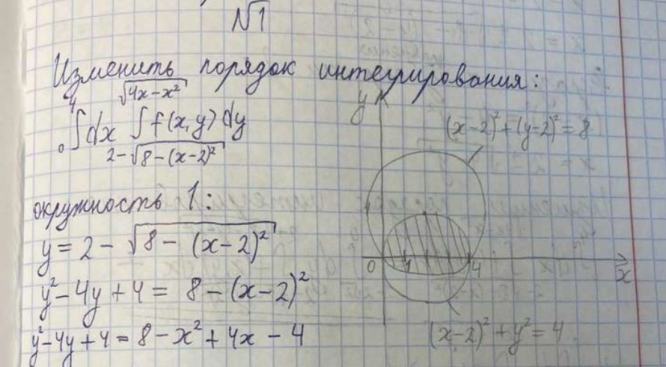 №1
Изменить порядок интегрирования:
₀∫⁴ dx ∫ f(x,y) dy
√(4x-x²)
2-√(8-(x-2)²)
окружность 1:
y = 2 - √(8 - (x-2)²)
y² - 4y + 4 = 8 - (x-2)²
y² - 4y + 4 = 8 - x² + 4x - 4
y
(x-2)² + (y-2)² = 8
0 4 x
(x-2)² + y² = 4